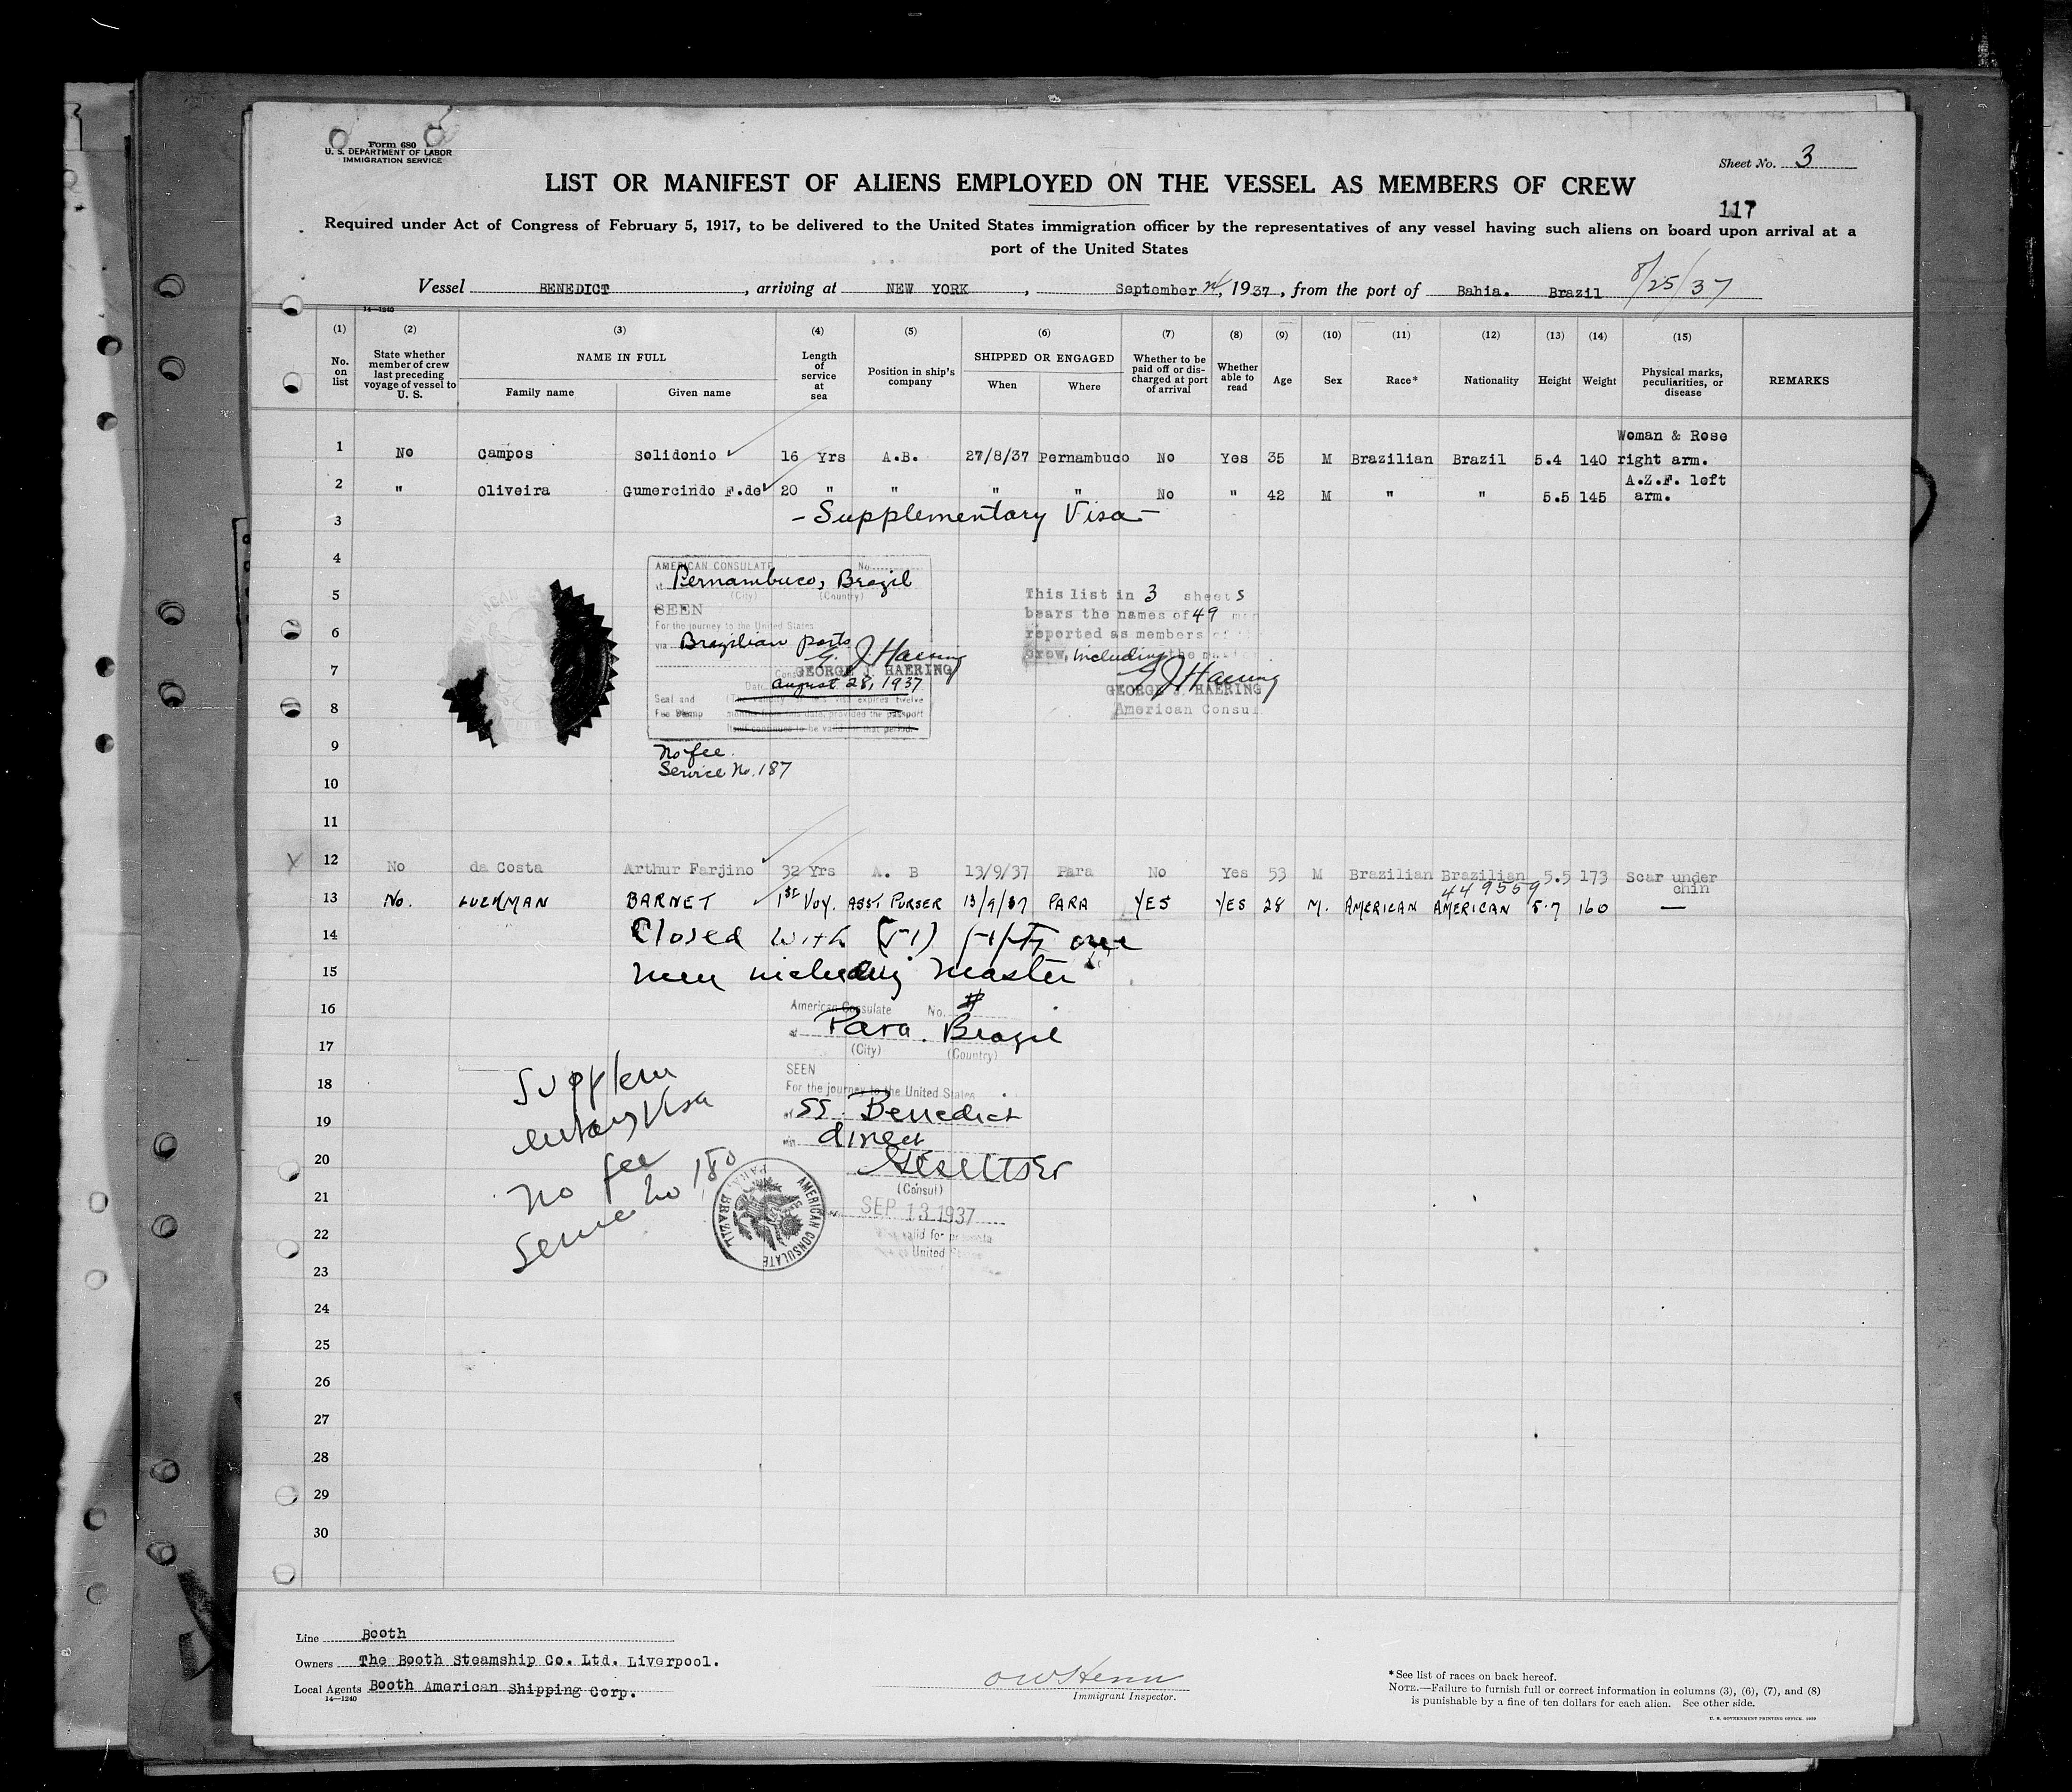 Form 680
U. S. DEPARTMENT OF LABOR
IMMIGRATION SERVICE
Sheet No. 3
LIST OR MANIFEST OF ALIENS EMPLOYED ON THE VESSEL AS MEMBERS OF CREW
117
Required under Act of Congress of February 5, 1917, to be delivered to the United States immigration officer by the representatives of any vessel having such aliens on board upon arrival at a
port of the United States
Vessel BENEDICT, arriving at NEW YORK, September 1937, from the port of Bahia. Brazil 8/25/37
14—1240
(1) (2) (3) (4) (5) (6) (7) (8) (9) (10) (11) (12) (13) (14) (15)
No. on list
State whether member of crew last preceding voyage of vessel to U. S.
NAME IN FULL
Family name
Given name
Length of service at sea
Position in ship's company
SHIPPED OR ENGAGED
When
Where
Whether to be paid off or discharged at port of arrival
Whether able to read
Age
Sex
Race*
Nationality
Height
Weight
Physical marks, peculiarities, or disease
REMARKS
1 No Campos Solidonio 16 Yrs A.B. 27/8/37 Pernambuco No Yes 35 M Brazilian Brazil 5.4 140 Woman & Rose right arm.
2 " Oliveira Gumercindo F.de 20 " " " " No " 42 M " " 5.5 145 A.Z.F. left arm.
3 - Supplementary Visa -
4
AMERICAN CONSULATE No.
at Pernambuco, Brazil
(City) (Country)
5
SEEN
For the journey to the United States
6
via Brazilian ports
G. J. Haering
7
GEORGE J. HAERING
Date August 28, 1937
8
Seal and Fee Stamp
(The validity of this visa expires twelve
months from this date, provided the passport
itself continues to be valid for that period.
This list in 3 sheets
bears the names of 49 men
reported as members of the
crew, including the
G J Haering
GEORGE J. HAERING
American Consul
9
No fee.
Service No. 187
10
11
12 No da Costa Arthur Farjino 32 Yrs A. B 13/9/37 Para No Yes 53 M Brazilian Brazilian 5.5 173 Scar under chin
449559
13 No. LUCKMAN BARNET 1st VOY. ASST PURSER 13/9/37 PARA YES YES 28 M. AMERICAN AMERICAN 5.7 160 —
14 Closed with (51) fifty one
15 men including master
16
American Consulate No. #
at Para. Brazil
17
(City) (Country)
18
SEEN
For the journey to the United States
19
of SS. Benedict
via direct
20
(Consul)
21
SEP 13 1937
22
valid for
United
Supplementary Visa
no fee
Service No 180
AMERICAN CONSULATE
PARA, BRAZIL
23
24
25
26
27
28
29
30
Line Booth
Owners The Booth Steamship Co. Ltd. Liverpool.
Local Agents Booth American Shipping Corp.
14—1240
Immigrant Inspector.
*See list of races on back hereof.
NOTE.—Failure to furnish full or correct information in columns (3), (6), (7), and (8)
is punishable by a fine of ten dollars for each alien. See other side.